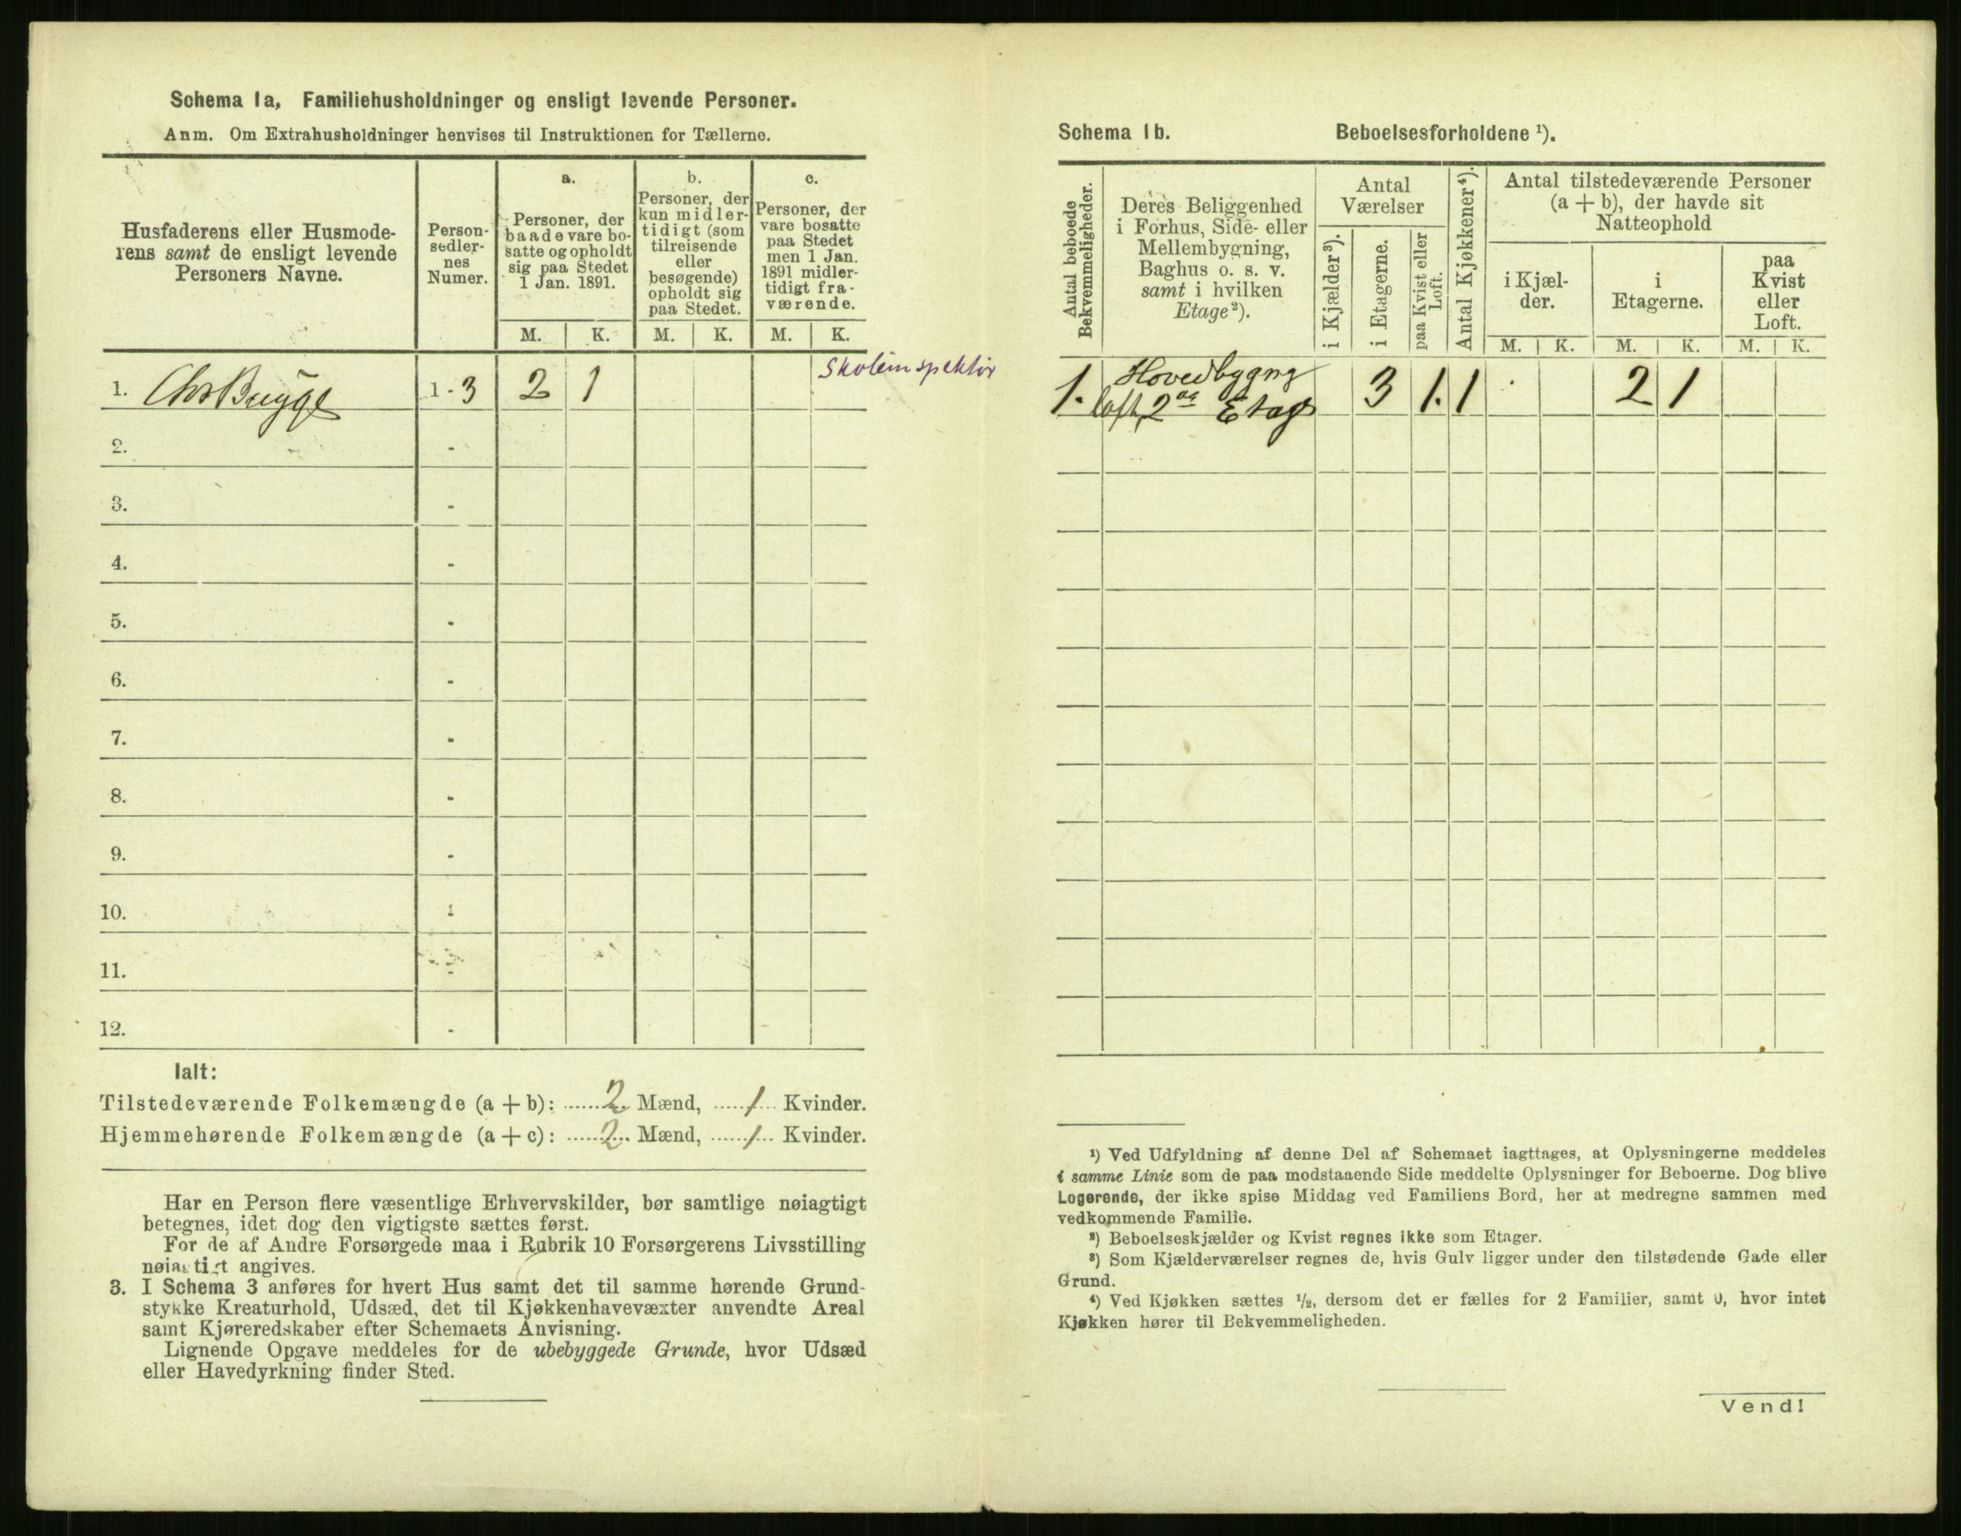 Schema 1a, Familiehusholdninger og ensligt levende Personer.
Anm. Om Extrahusholdninger henvises til Instruktionen for Tællerne.
Husfaderens eller Husmode-
rens samt de ensligt levende
Personers Navne.
Person-
sedler-
nes
Numer.
a.
Personer, der
baade vare bo-
satte og opholdt
sig paa Stedet
1 Jan. 1891.
b.
Personer, der
kun midler-
tidigt (som
tilreisende
eller
besøgende)
opholdt sig
paa Stedet.
c.
Personer, der
vare bosatte
paa Stedet
men 1 Jan.
1891 midler-
tidigt fra-
værende.
M. K. M. K. M. K.
Skoleinspektør
1. Chr Brygge 1-3 2 1
2. -
3. -
4. -
5. -
6. -
7. -
8. -
9. -
10.
11. -
12. -
Ialt:
Tilstedeværende Folkemængde (a + b): 2 Mænd, 1 Kvinder.
Hjemmehørende Folkemængde (a + c): 2 Mænd, 1 Kvinder.
Har en Person flere væsentlige Erhvervskilder, bør samtlige nøiagtigt
betegnes, idet dog den vigtigste sættes først.
For de af Andre Forsørgede maa i Rubrik 10 Forsørgerens Livsstilling
nøiagtigt angives.
3. I Schema 3 anføres for hvert Hus samt det til samme hørende Grund-
stykke Kreaturhold, Udsæd, det til Kjøkkenhavevæxter anvendte Areal
samt Kjøreredskaber efter Schemaets Anvisning.
Lignende Opgave meddeles for de ubebyggede Grunde, hvor Udsæd
eller Havedyrkning finder Sted.
Schema 1b. Beboelsesforholdene ¹).
Antal beboede
Bekvemmeligheder.
Deres Beliggenhed
i Forhus, Side- eller
Mellembygning,
Baghus o. s. v.
samt i hvilken
Etage ²).
Antal
Værelser
i Kjælder ³).
i Etagerne.
paa Kvist eller
Loft.
Antal Kjøkkener ⁴).
Antal tilstedeværende Personer
(a + b), der havde sit
Natteophold
i Kjæl-
der.
i
Etagerne.
paa
Kvist
eller
Loft.
M. K. M. K. M. K.
1. Hovedbygng 3 1. 1 2 1
loft, 2 Etage
¹) Ved Udfyldning af denne Del af Schemaet iagttages, at Oplysningerne meddeles
i samme Linie som de paa modstaaende Side meddelte Oplysninger for Beboerne. Dog blive
Logerende, der ikke spise Middag ved Familiens Bord, her at medregne sammen med
vedkommende Familie.
²) Beboelseskjælder og Kvist regnes ikke som Etager.
³) Som Kjælderværelser regnes de, hvis Gulv ligger under den tilstødende Gade eller
Grund.
⁴) Ved Kjøkken sættes ½, dersom det er fælles for 2 Familier, samt 0, hvor intet
Kjøkken hører til Bekvemmeligheden.
Vend!